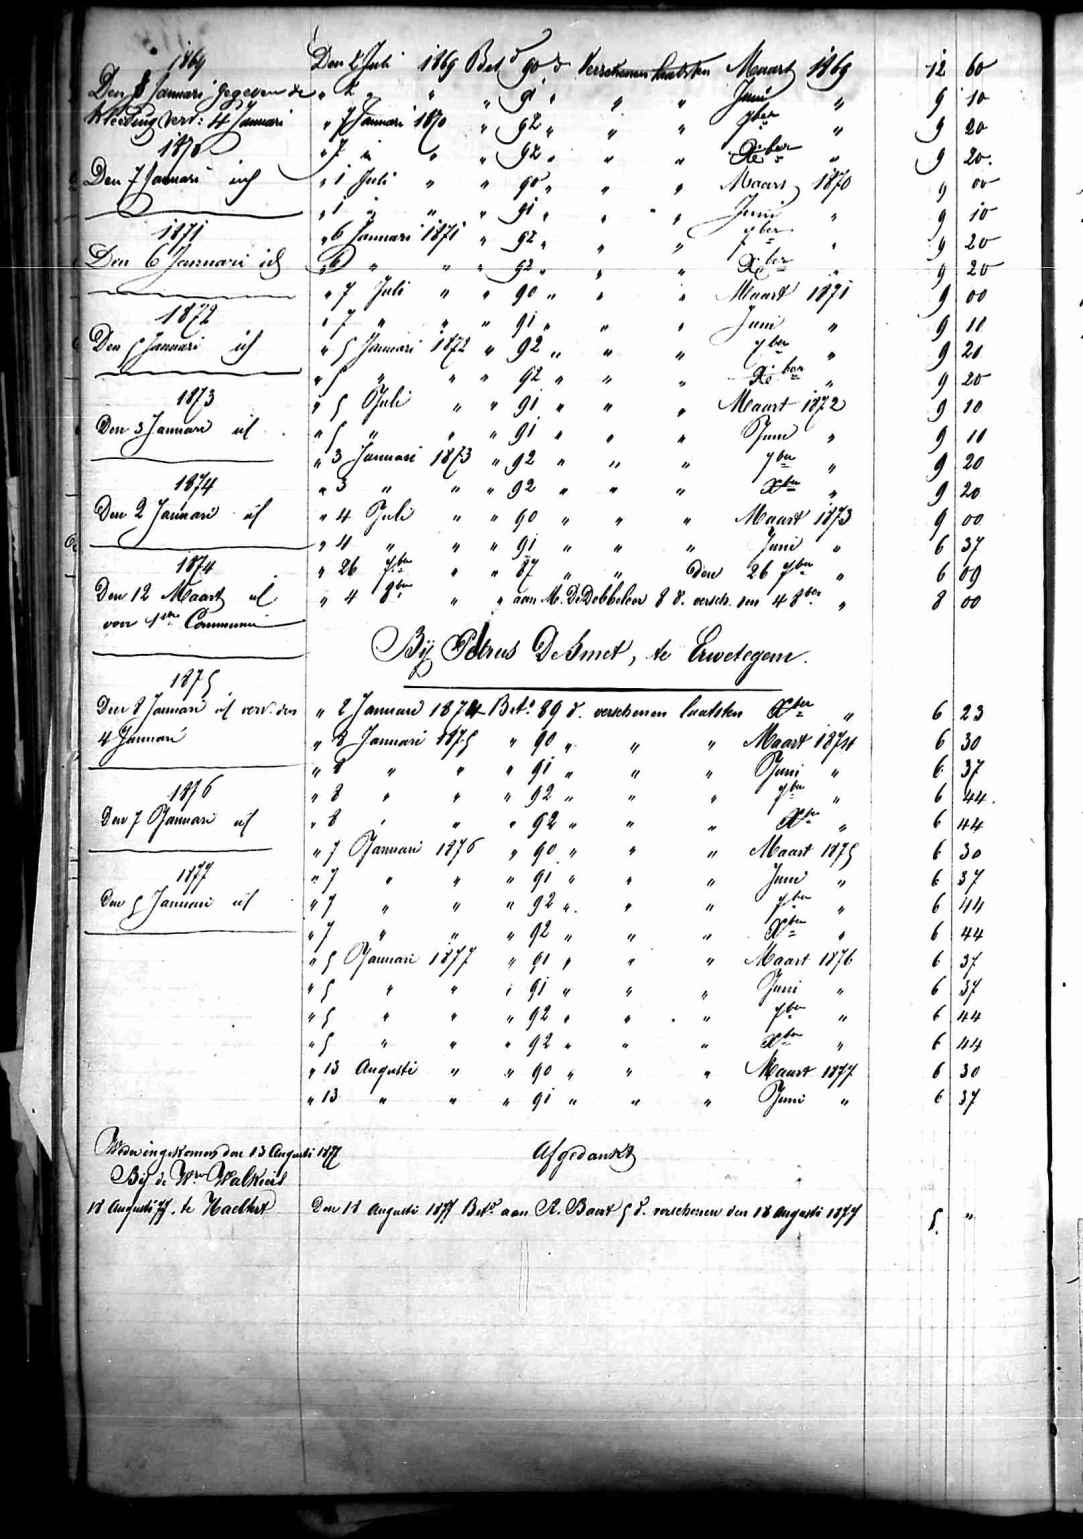 1869
Den 8 Januari gegeven de
kleeding verv: 4 Januari
1870
Den 7 Januari id
1871
Den 6 Januari id
1872
Den 5 Januari id
1873
Den 3 Januari id
1874
Den 2 Januari id
1874
Den 12 Maart id
voor 1ste Communie
1875
Den 8 Januari id verv. den
4 Januari
1876
Den 7 Januari id
1877
Den 5 Januari id
Den 2 Juli 1869 Betd 90 d verschenen laatsten Maart 1869 12 60
" 2 " " " 91 " " " Juni " 9 10
" 7 Januari 1870 " 92 " " " 7ber " 9 20
" 7 " " " 92 " " " Xber " 9 20
" 1 Juli " " 90 " " " Maart 1870 9 00
" 1 " " " 91 " " " Juni " 9 10
" 6 Januari 1871 " 92 " " " 7ber " 9 20
" 6 " " " 92 " " " Xber " 9 20
" 7 Juli " " 90 " " " Maart 1871 9 00
" 7 " " " 91 " " " Juni " 9 10
" 5 Januari 1872 " 92 " " " 7ber " 9 20
" 5 " " " 92 " " " Xber " 9 20
" 5 Juli " " 91 " " " Maart 1872 9 10
" 5 " " " 91 " " " Juni " 9 10
" 3 Januari 1873 " 92 " " " 7ber " 9 20
" 3 " " " 92 " " " Xber " 9 20
" 4 Juli " " 90 " " " Maart 1873 9 00
" 4 " " " 91 " " " Juni " 6 37
" 26 7ber " " 87 " " den 26 7ber " 6 09
" 4 8ber " " aan M. De Dobbeleer 8 d. versch. den 4 8ber " 8 00
Bij Petrus De Smet, te Erwetegem.
" 2 Januari 1874 Betd 89 d. verschenen laatsten Xber " 6 23
" 8 Januari 1875 " 90 " " " Maart 1874 6 30
" 8 " " " 91 " " " Juni " 6 37
" 8 " " " 92 " " " 7ber " 6 44
" 8 " " " 92 " " " Xber " 6 44
" 7 Januari 1876 " 90 " " " Maart 1875 6 30
" 7 " " " 91 " " " Juni " 6 37
" 7 " " " 92 " " " 7ber " 6 44
" 7 " " " 92 " " " Xber " 6 44
" 5 Januari 1877 " 91 " " " Maart 1876 6 37
" 5 " " " 91 " " " Juni " 6 37
" 5 " " " 92 " " " 7ber " 6 44
" 5 " " " 92 " " " Xber " 6 44
" 13 Augusti " " 90 " " " Maart 1877 6 30
" 13 " " " 91 " " " Juni " 6 37
Weder ingekomen den 13 Augusti 1877 Afgedankt
Bij de Wwe
18 Augusti 77. te Haeltert Den 18 Augusti 1877 Betd aan A. Baut 5 d. verschenen den 18 Augusti 1877 5 "